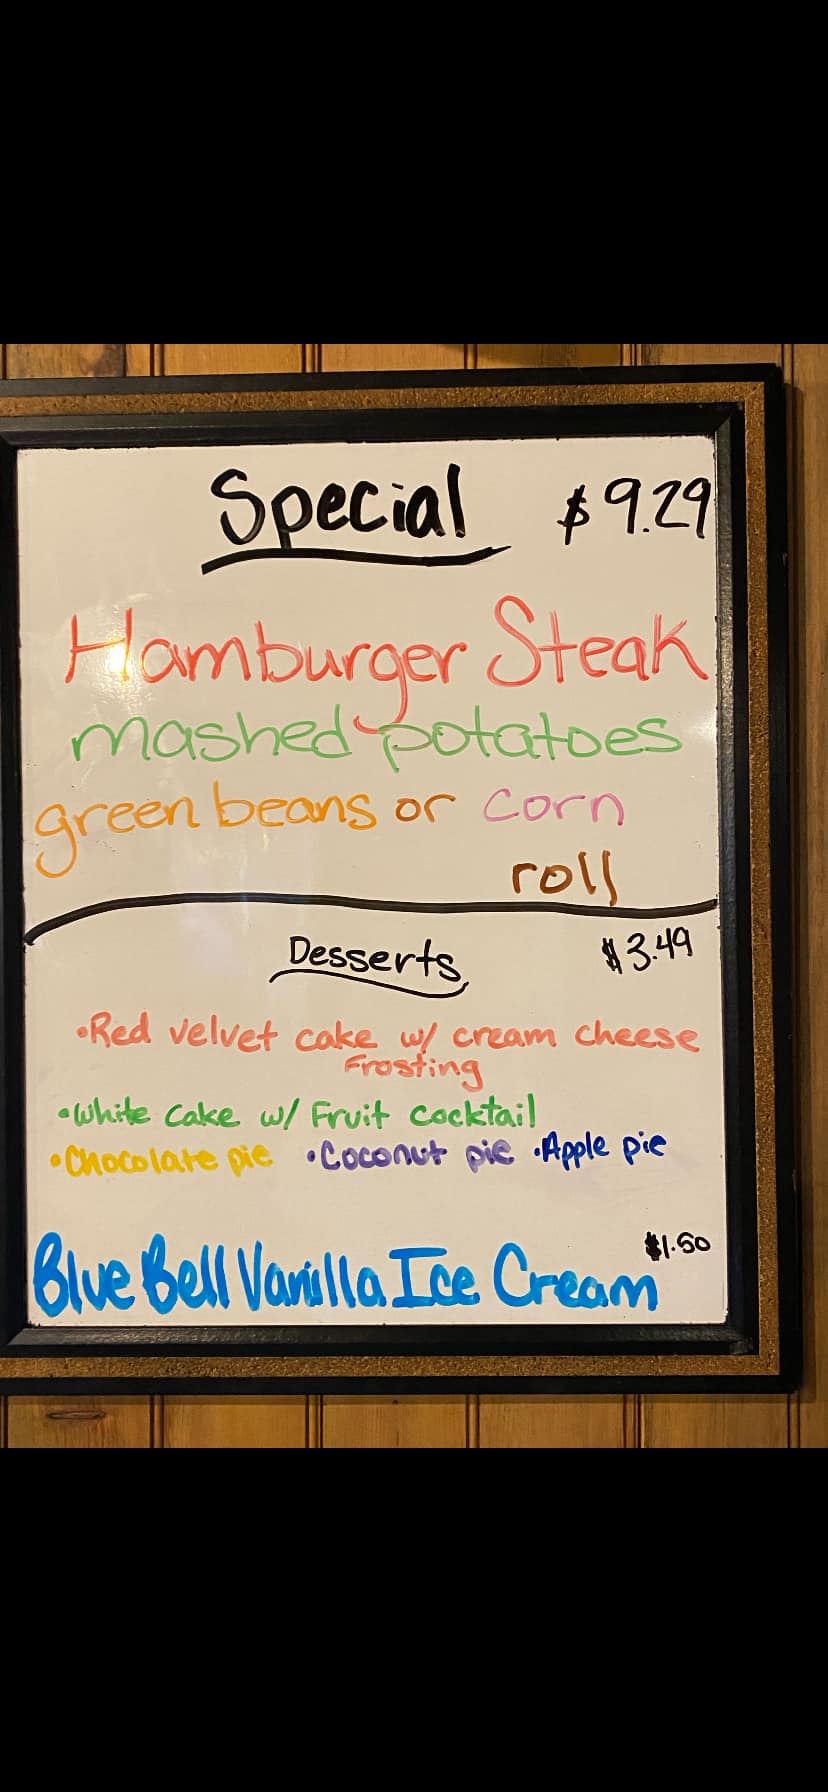 Special $9.29
Hamburger Steak
mashed potatoes
green beans or corn
roll
Desserts $3.49
•Red velvet cake w/ cream cheese
Frosting
•White cake w/ Fruit cocktail
•Chocolate pie •Coconut pie •Apple pie
$1.50
Blue Bell Vanilla Ice Cream